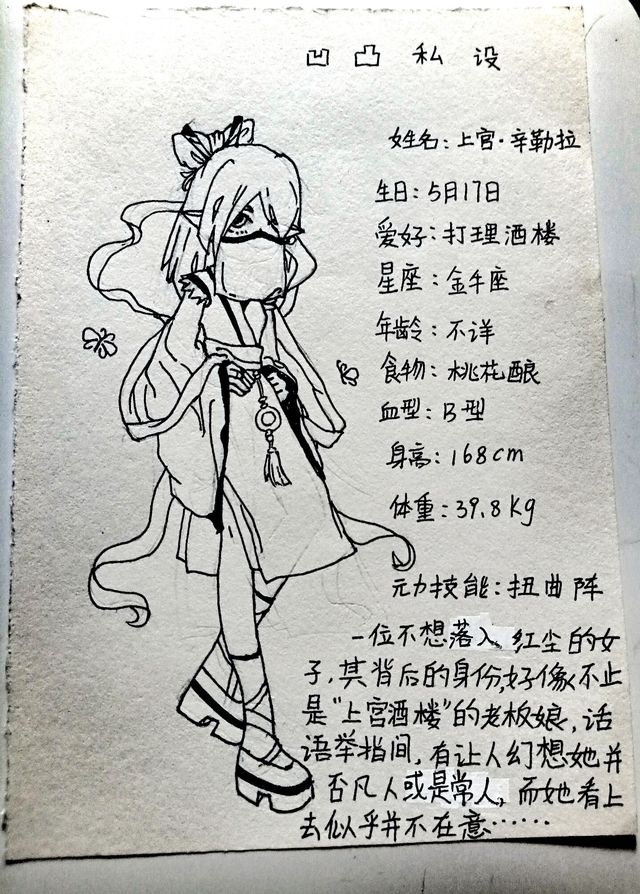 凹凸私设
姓名：上官·辛勒拉
生日：5月17日
爱好：打理酒楼
星座：金牛座
年龄：不详
食物：桃花酿
血型：B型
身高：168cm
体重：39.8Kg
元力技能：扭曲阵
一位不想落入红尘的女
子，其背后的身份，好像不止
是“上宫酒楼”的老板娘，话
语举指间，有让人幻想她并
否凡人或是常人，而她看上
去似乎并不在意……